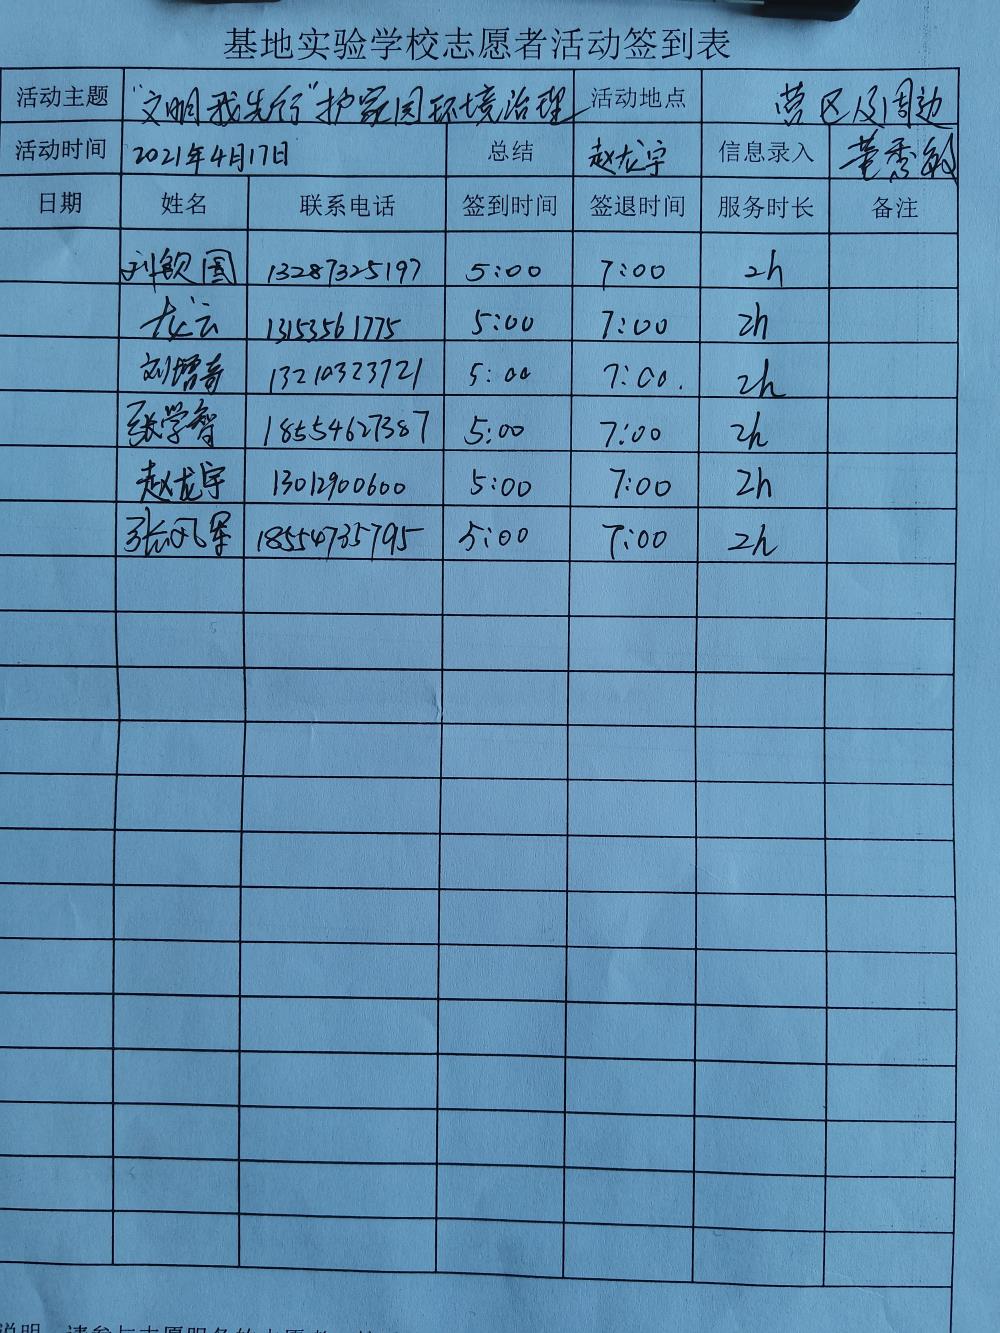 基地实验学校志愿者活动签到表
活动主题 "文明我先行"护家园环境治理 活动地点 营区及周边
活动时间 2021年4月17日 总结 赵龙宇 信息录入 董秀敏
日期 姓名 联系电话 签到时间 签退时间 服务时长 备注
刘钦圆 13287325197 5:00 7:00 2h
龙云 13153561775 5:00 7:00 2h
刘增奇 13210323721 5:00 7:00. 2h
张学智 18554627387 5:00 7:00 2h
赵龙宇 13012900600 5:00 7:00 2h
张风军 18554735795 5:00 7:00 2h
说明